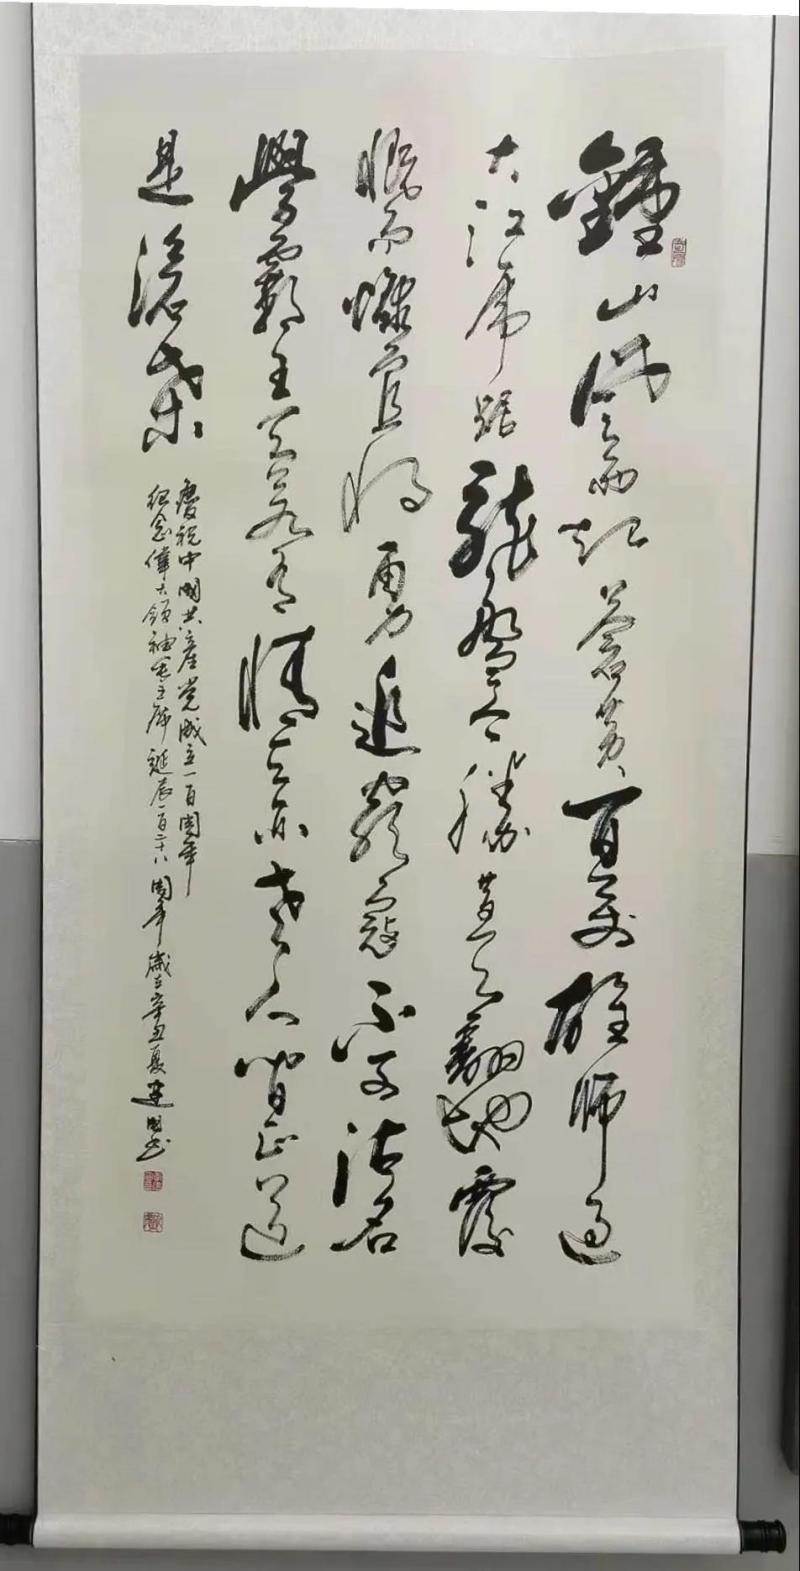 鍾山風雨起蒼黄百万雄師過
大江虎踞龍盤今勝昔天翻地覆
慨而慷宜將剩勇追窮寇不可沽名
學霸王天若有情天亦老人間正道
是滄桑
慶祝中國共產党成立一百周年
纪念偉大領袖毛主席誕辰一百二十八周年歲在辛丑夏建國书